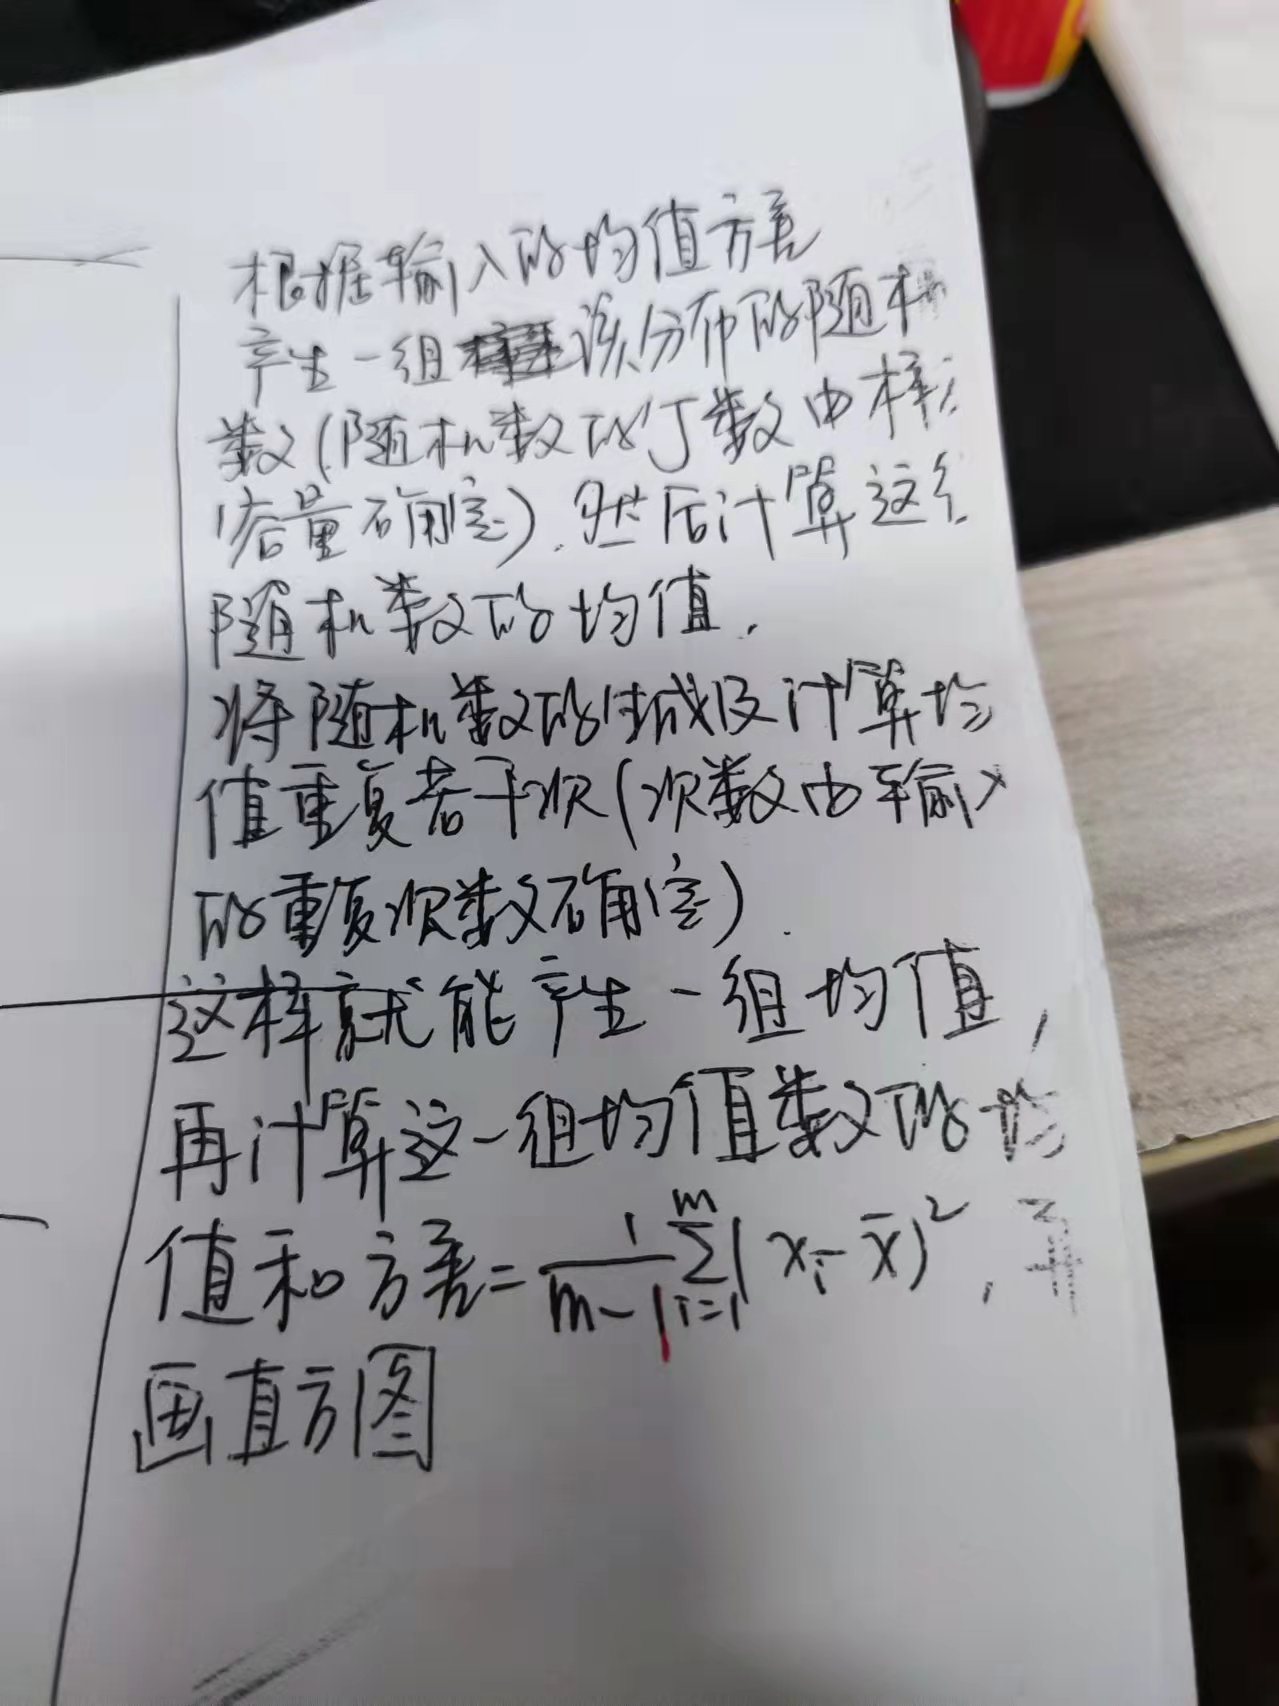 根据输入的均值方差
产生一组该分布的随机
数(随机数的个数由样
容量确定).然后计算这
随机数的均值.
将随机数的生成及计算均
值重复若干次(次数由输入
的重复次数确定).
这样就能产生一组均值,
再计算这一组均值数的均
值和方差=\frac{1}{m-1}\sum_{i=1}^{m}(x_i-\bar{x})^2,并
画直方图